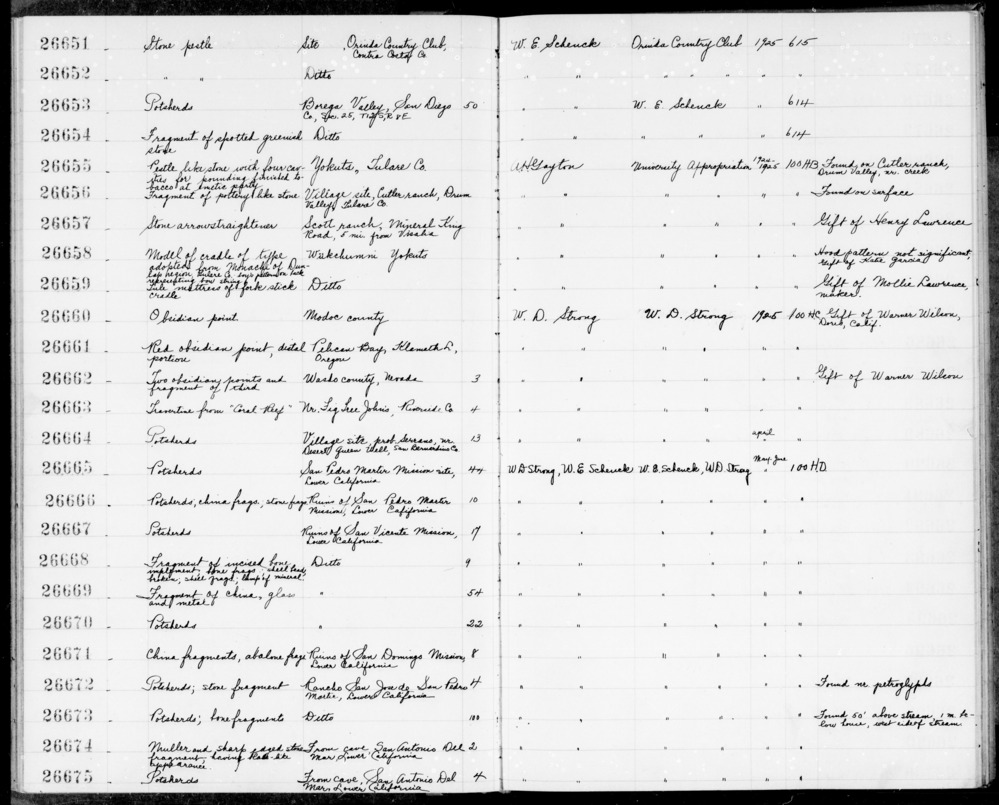 26651 Stone pestle Site, Orinda Country Club, W. E. Schenck Orinda Country Club 1925 615
Contra Costa Co.
26652 " " Ditto " " " " " " "
26653 Potsherds Borega Valley, San Diego 50 " " W. E. Schenck " 614
Co., Sec. 25,
26654 Fragment of spotted greenish Ditto " " " " " " 614
stone
26655 Pestle like stone with four cav- Yokuts, Tulare Co. A.H. Gayton University Appropriation 1925 100 HB Found on Cutler ranch,
ities for pounding finished to- Drum Valley, nr. creek
bacco at emetic party
26656 Fragment of pottery like stone Village site, Cutler ranch, Drum " " " " " Found on surface
Valley, Tulare Co.
26657 Stone arrowstraightener Scott ranch, Mineral King " " " " " Gift of Henry Lawrence
Road, 5 mi from Visalia
26658 Model of cradle of type Wukchumni Yokuts " " " " " Hood pattern not significant,
adopted from Monachi of Dun- Gift of Kate Garcia
lap region, Tulare Co.
representing bow string
26659 Tule mattress of fork stick Ditto " " " " " Gift of Mollie Lawrence,
cradle maker.
26660 Obsidian point Modoc county W. D. Strong W. D. Strong 1925 100 HC Gift of Warner Wilson,
Doris, Calif.
26661 Red obsidian point, distal Pelican Bay, Klamath L, " " " " " "
portion Oregon
26662 Two obsidian points and Washo county, Nevada 3 " " " " " " Gift of Warner Wilson
fragment of third
26663 Travertine from "Coral Reef" Nr. Fig Tree John's, Riverside Co 4 " " " " " "
26664 Potsherds Village site, prob. Serrano, nr. 13 " " " " april "
Desert Queen Well, San Bernardino Co.
26665 Potsherds San Pedro Martir Mission site, 44 W D Strong, W. E Schenck W. E. Schenck, W D Strong May-June " 100 HD
Lower California
26666 Potsherds, china frags, stone frags Ruins of San Pedro Martir 10 " " " " " "
Mission, Lower California
26667 Potsherds Ruins of San Vicente Mission, 17 " " " " " "
Lower California
26668 Fragment of incised bone Ditto 9 " " " " " "
implement, bone frags; shell bead
broken; shell frags; lump of mineral
26669 Fragment of china, glass " 54 " " " " " "
and metal
26670 Potsherds " 22 " " " " " "
26671 China fragments, abalone frags Ruins of San Domingo Mission, 8 " " " " " "
Lower California
26672 Potsherds; stone fragment Rancho San Jose de San Pedro 4 " " " " " " Found nr petroglyphs
Martir, Lower California
26673 Potsherds; bone fragments Ditto 100 " " " " " " Found 50' above stream, 1 m. be-
low house, west side of stream.
26674 Muller and sharp edged stone From cave, San Antonio Del 2 " " " " " "
fragment having blade-like Mar, Lower California
appearance
26675 Potsherds From cave, San Antonio Del 4 " " " " " "
Mar, Lower California